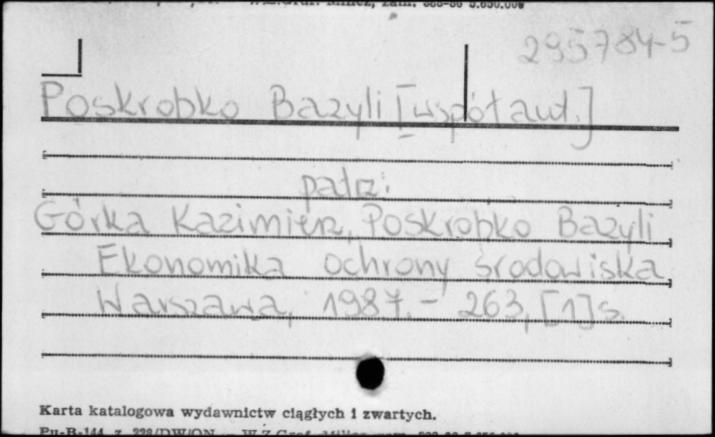 295784-5
Poskrobko Bazyli [współaut.]
patrz:
Górka Kazimierz, Poskrobko Bazyli
Ekonomika ochrony środowiska.
Warszawa, 1987. - 263, [1] s.
Karta katalogowa wydawnictw ciągłych i zwartych.
Pu-B-144 z.